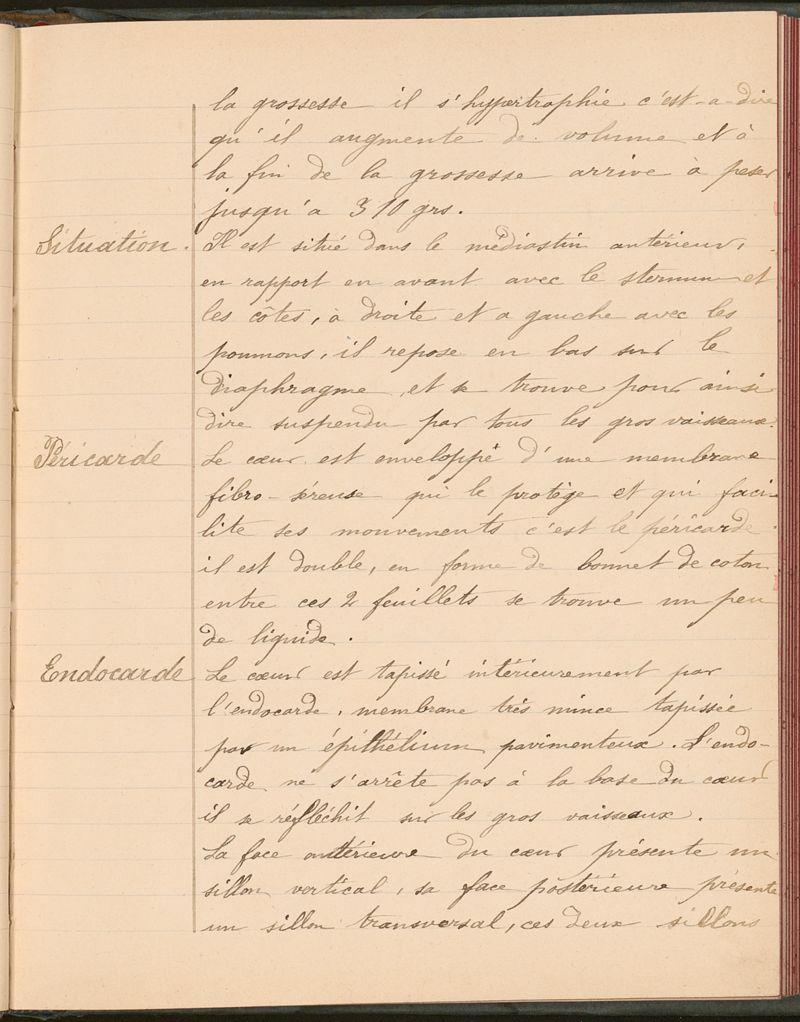 la grossesse il s'hypertrophie c'est-a-dire
qu'il augmente de volume et à
la fin de la grossesse arrive à peser
jusqu'a 310 grs.
Situation. Il est situé dans le médiastin antérieur,
en rapport en avant avec le sternum et
les côtes, à droite et a gauche avec les
poumons, il repose en bas sur le
diaphragme, et se trouve pour ainsi
dire suspendu par tous les gros vaisseaux.
Péricarde Le cœur est enveloppé d'une membrane
fibro-séreuse qui le protège et qui faci-
lite ses mouvements c'est le péricarde.
il est double, en forme de bonnet de coton
entre ces 2 feuillets se trouve un peu
de liquide.
Endocarde Le cœur est tapissé intérieurement par
l'endocarde, membrane très mince tapissée
par un épithélium pavimenteux. L'endo-
carde ne s'arrête pas à la base du cœur
il se réfléchit sur les gros vaisseaux.
La face antérieure du cœur présente un
sillon vertical, sa face postérieure présente
un sillon transversal, ces deux sillons